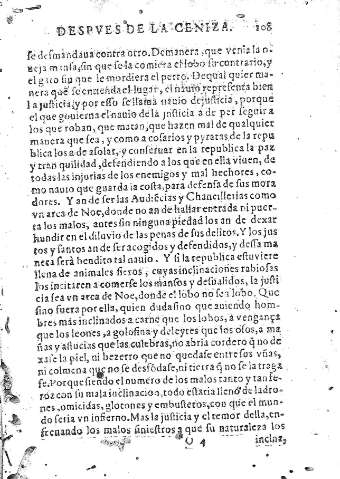 DESPVES DE LA CENIZA. 108
se desmandaua contra otro. Demanera, que venia la o
ueja mansa, sin que se la comiera el lobo su contrario, y
el gato sin que le mordiera el perro. De qual quier ma
nera que se entienda el lugar, el nauio representa bien
la justicia, y por esso se llama nauio de justicia, porque
el que gouierna el nauio de la justicia a de perseguir a
los que roban, que matan, que hazen mal de qualquier
manera que sea, y como a cosarios y pyratas de la repu
blica los a de asolar, y conseruar en la republica la paz
y tran quilidad, defendiendo a los que en ella viuen, de
todas las injurias de los enemigos y mal hechores, co
mo nauio que guarda la costa, para defensa de sus mora
dores. Y an de ser las Audiēcias y Chancillerias como
vn arca de Noe, donde no an de hallar entrada ni puer
ta los malos, antes sin ninguna piedad los an de dexar
hundir en el diluuio de las penas de sus delitos. Y los jus
tos y santos an de ser acogidos y defendidos, y dessa ma
nera será bendito tal nauio. Y si la republica estuuiere
llena de animales fieros, cuyas inclinaciones rabiosas
los incitaren a comerse los mansos y desualidos, la justi
cia sea vn arca de Noe, donde el lobo no sea lobo. Que
sino fuera por ella, quien duda sino que auiendo hom-
bres más inclinados a carne que los lobos, a vengança
que los leones, a golosina y deleytes que los osos, a ma
ñas y astucias que las culebras, no abria cordero q̄ no de
xasse la piel, ni bezerro que no quedase entre sus vñas,
ni colmena que no se desfōdase, ni tierra q̄ no se la traga
se. Porque siendo el numero de los malos tanto y tan fe
roz con su mala inclinacion, todo estaria lleno de ladro-
nes, omicidas, glotones y embusteros, con que el mun-
do seria vn infierno. Mas la justicia y el temor della, en-
frenando los malos siniestros a que su naturaleza los
O 4 inclina,